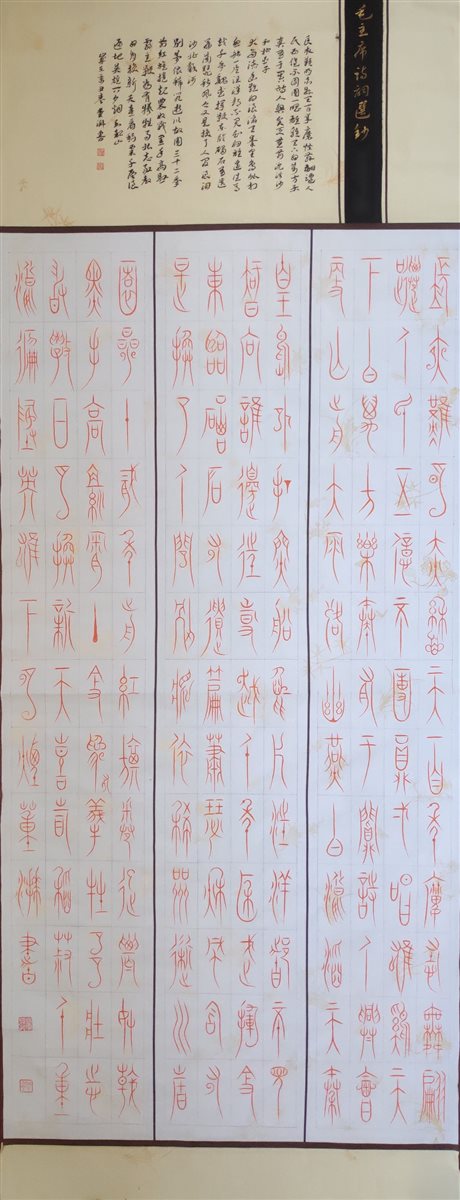 毛主席詩詞選鈔
長夜難明赤縣天百年魔怪舞翩躚人
民五億不團圓一唱雄雞天下白萬方樂
奏有于闐詩人興會更無前浣溪沙
和柳亞子
大雨落幽燕白浪滔天秦皇島外打
魚船一片汪洋都不見知向誰邊往事
越千年魏武揮鞭東臨碣石有遺
篇蕭瑟秋風今又是換了人間浪淘
沙北戴河
別夢依稀咒逝川故園三十二年
前紅旗卷起農奴戟黑手高懸
霸主鞭爲有犧牲多壯志敢教
日月換新天喜看稻菽千重浪
遍地英雄下夕煙到韶山
長夜難明赤縣天百年魔怪舞翩
躚人民五億不團圓一唱雄雞天
下白萬方樂奏有于闐詩人興會
更無前大雨落幽燕白浪滔天秦
皇島外打魚船一片汪洋都不見
知向誰邊往事越千年魏武揮鞭
東臨碣石有遺篇蕭瑟秋風今又
是換了人間別夢依稀咒逝川故
園三十二年前紅旗卷起農奴戟
黑手高懸霸主鞭爲有犧牲多壯志
敢教日月換新天喜看稻菽千重
浪遍地英雄下夕煙董書